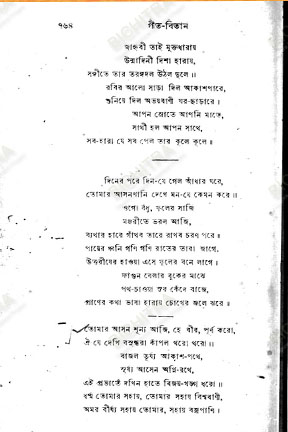 ৭৬৪ গীত-বিতান
জাহ্নবী তাই মুক্তধারায়
উন্মাদিনী দিশা হারায়,
সঙ্গীতে তার তরঙ্গদল উঠল দুলে॥
রবির আলো সাড়া দিল আকাশপারে,
শুনিয়ে দিল অভয়বাণী ঘর-ছাড়ারে।
আপন স্রোতে আপনি মাতে,
সাথী হল আপন সাথে,
সব-হারা যে সব পেল তার কূলে কূলে॥
দিনের পরে দিন-যে গেল আঁধার ঘরে,
তোমার আসনখানি দেখে মন-যে কেমন করে॥
ওগো বঁধু, ফুলের সাজি
মঞ্জরীতে ভরল আজি,
ব্যথার হারে গাঁথব তারে রাখব চরণ পরে॥
পায়ের ধ্বনি গণি গণি রাতের তারা জাগে,
উত্তরীয়ের হাওয়া এসে ফুলের বনে লাগে।
ফাগুন বেলার বুকের মাঝে
পথ-চাওয়া সুর কেঁদে বাজে,
প্রাণের কথা ভাষা হারায় চোখের জলে ঝরে॥
তোমার আসন শূন্য আজি, হে বীর, পূর্ণ করো,
ঐ যে দেখি বসুন্ধরা কাঁপল থরো থরো॥
বাজল তূর্য্য আকাশ-পথে,
সূর্য্য আসেন অগ্নি-রথে,
এই প্রভাতে দখিন হাতে বিজয়-খড়্গ ধরো॥
ধর্ম্ম তোমার সহায়, তোমার সহায় বিশ্ববাণী,
অমর বীর্য্য সহায় তোমার, সহায় বজ্রপাণি।